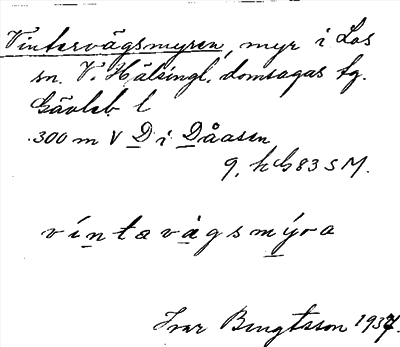 Vintervägsmyren, myr i Los
sn. V. Hälsingl. domsagas tg.
Gävleb l
300 m V D i Dåasen
9, k G 83 S M.
víntavàgsmýra
Ivar Bengtsson 1937.